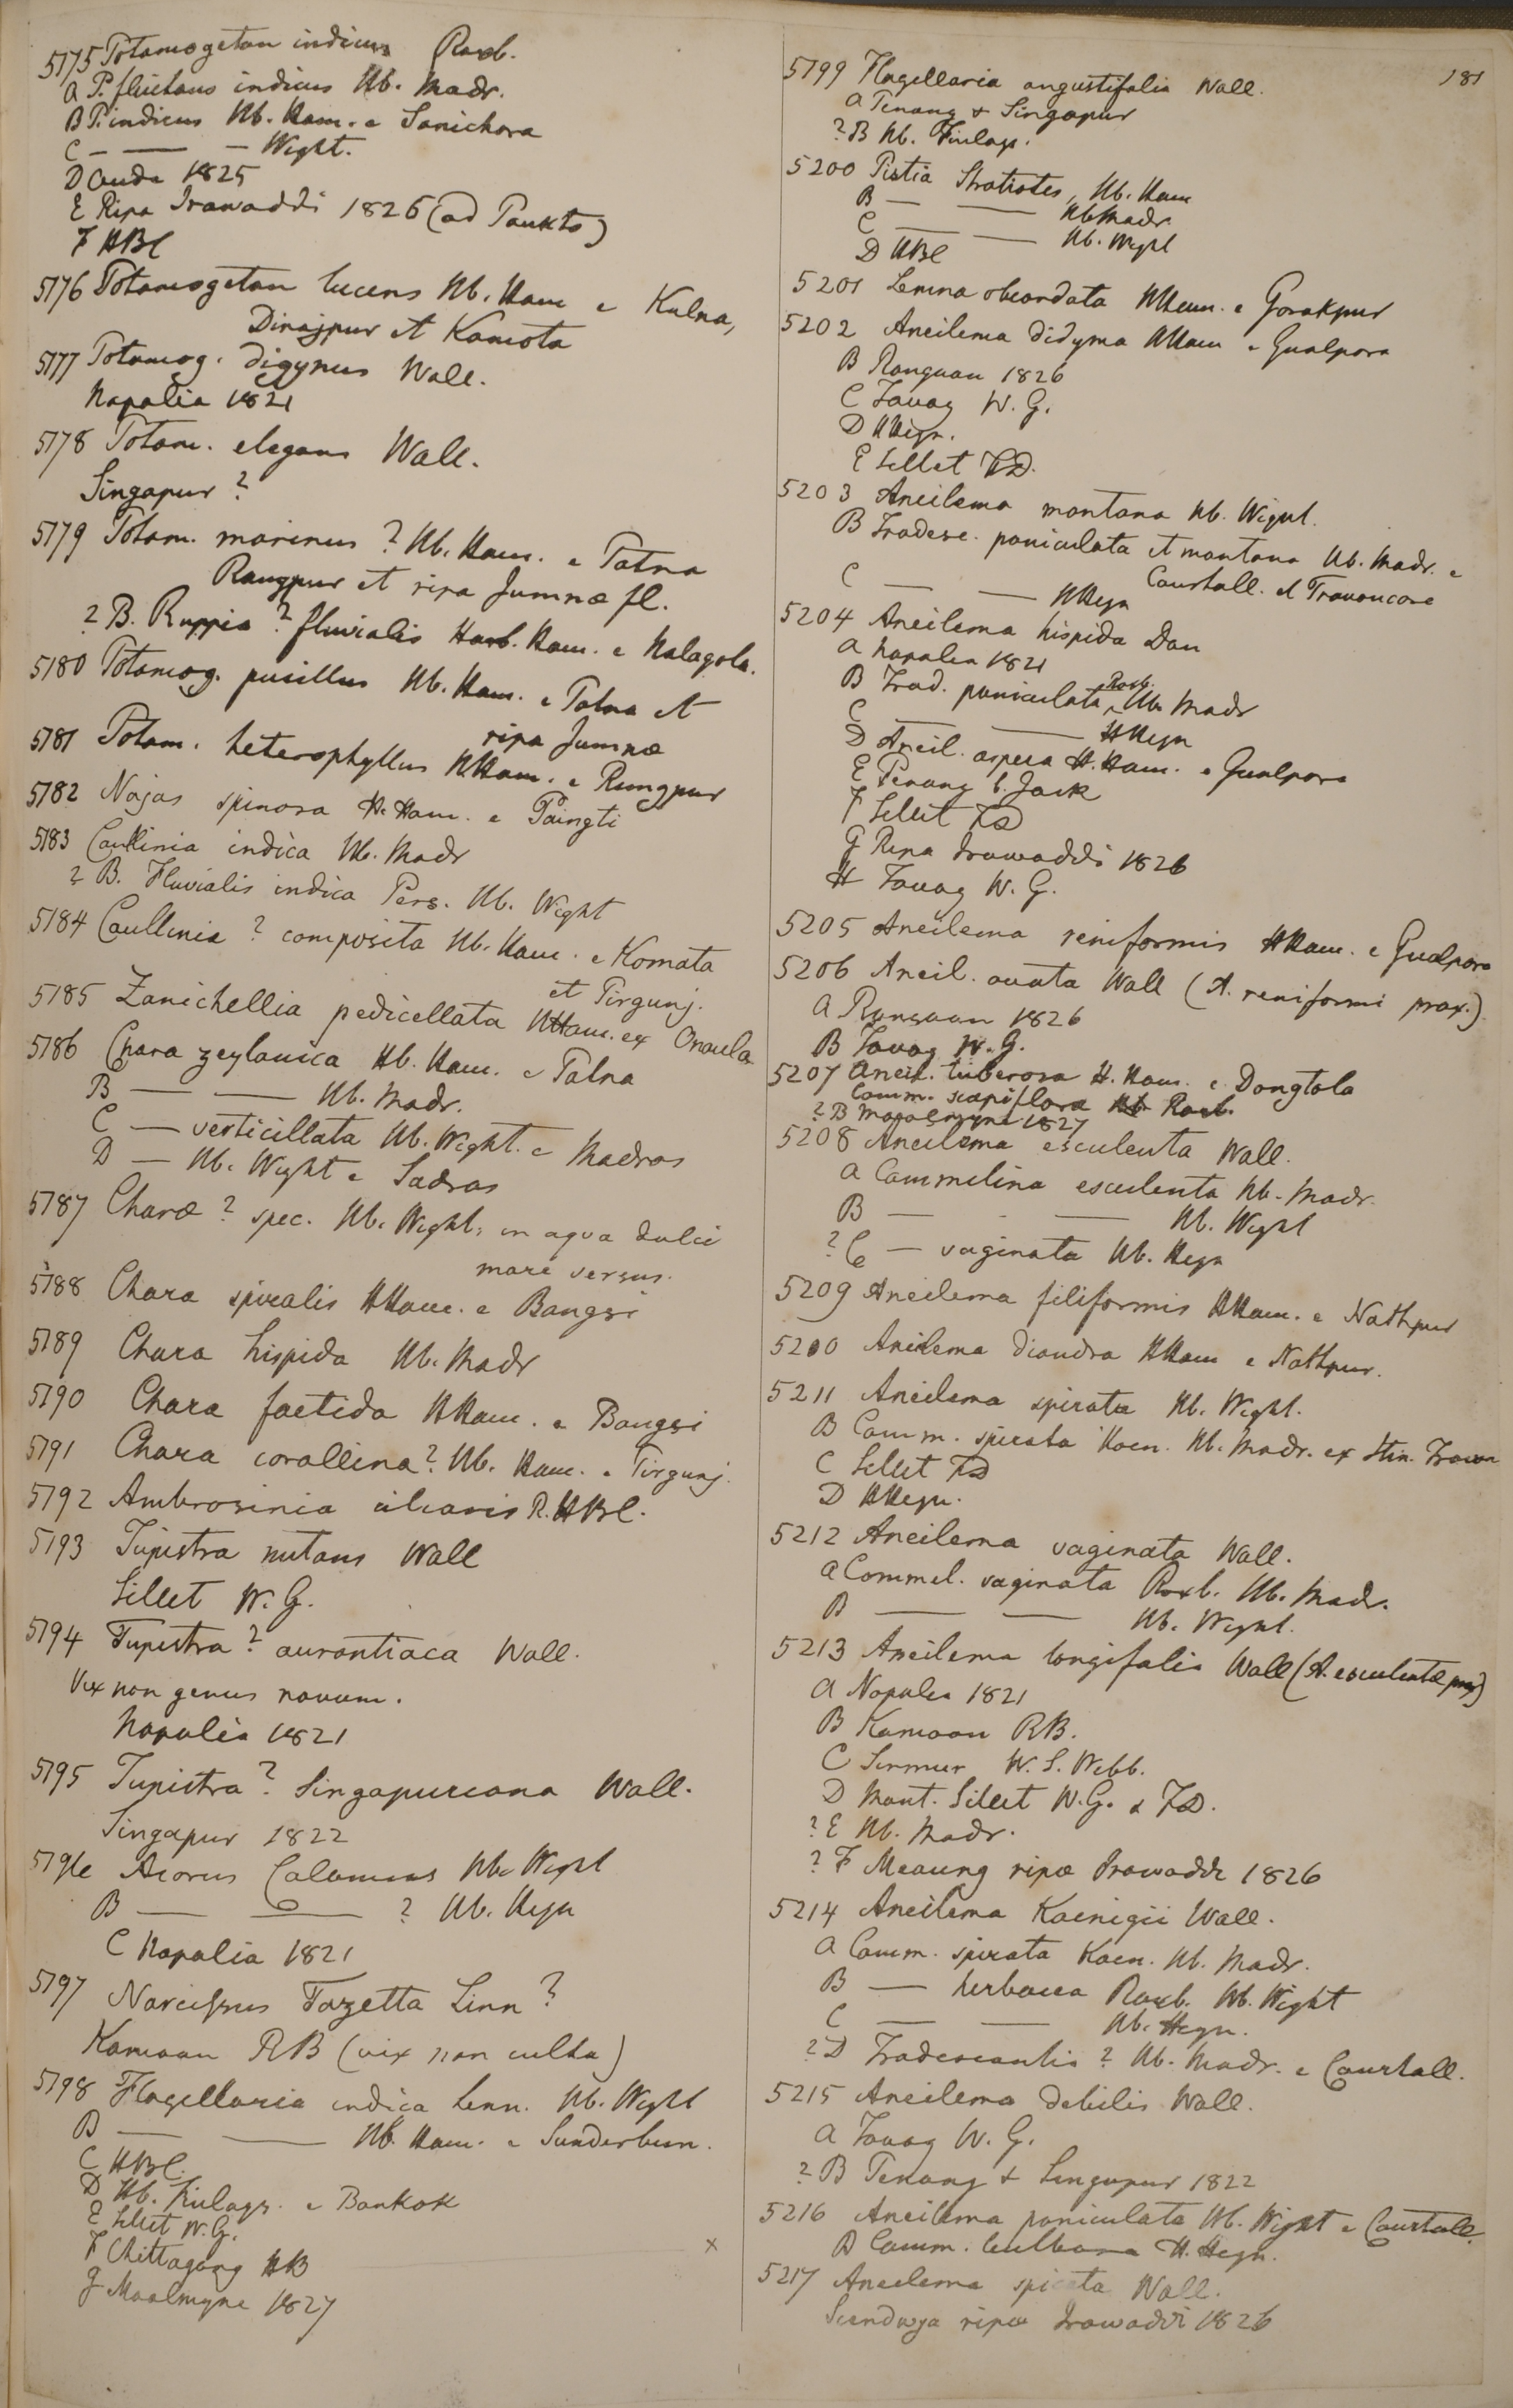 5175 Potamogeton indicus Roxb.
A P. fluitans indicus Hb. Madr.
B P. indicus Hb. Ham. e Sanichora
C — — — Wight.
D Oude 1825
E Ripa Irawaddi 1826 (ad Paukto)
F HBC
5176 Potamogeton lucens Hb. Ham e Kulna,
Dinajpur et Kamota
5177 Potamog. digynus Wall.
Napalia 1821
5178 Potam. elegans Wall.
Singapur ?
5179 Potam. marinus ? Hb. Ham. e Patna
Rangpur et ripa Jumnæ fl.
? B. Ruppia ? fluvialis Herb. Ham. e Nalagola.
5180 Potamog. pusillus Hb. Ham. e Patna et
ripa Jumnæ
5181 Potam. heterophyllus HHam. e Rungpur
5182 Najas spinosa H. Ham. e Paingti
5183 Caullinia indica Hb. Madr
? B. Fluvialis indica Pers. Hb. Wight
5184 Caullinia ? composita Hb. Ham. e Komata
et Pirgunj.
5185 Zanichellia pedicellata HHam. ex Onaula
5186 Chara zeylanica Hb. Ham. e Patna
B — — Hb. Madr.
C — verticillata Hb. Wight. e Madras
D — Hb. Wight e Sadras
5187 Charæ ? spec. Hb. Wight, in aqua dulci
mare versus.
5188 Chara spiralis HHam. e Bangsi
5189 Chara hispida Hb. Madr
5190 Chara foetida HHam. e Bangsi
5191 Chara corallina ? Hb. Ham. e Pirgunj.
5192 Ambrosinia ciliaris R. HBC.
5193 Tupistra nutans Wall
Sillet W. G.
5194 Tupistra ? aurantiaca Wall.
Vix non genus novum.
Napalia 1821
5195 Tupistra ? Singapureana Wall.
Singapur 1822
5196 Acorus Calamus Hb. Wight
B — — ? Hb. Heyn
C Napalia 1821
5197 Narcissus Tazetta Linn ?
Kamaon RB (vix non culta)
5198 Flagellaria indica Linn. Hb. Wight
B — — Hb. Ham. e Sunderbun.
C HBC.
D Hb. Finlays. e Bankok
E Sillet W. G.
F Chittagong HB
G Moalmyne 1827
181
5199 Flagellaria angustifolia Wall.
A Penang & Singapur
? B Hb. Finlays.
5200 Pistia Stratiotes, Hb. Ham
B — — Hb Madr.
C — — Hb. Wight
D HBC
5201 Lemna obcordata HHam. e Gorakpur
5202 Aneilema didyma HHam e Gualpara
B Ranguun 1826
C Tavoy W. G.
D HHeyn.
E Sillet FD.
5203 Aneilema montana Hb. Wight.
B Tradesc. paniculata et montana Hb. Madr. e
Courtall. et Travancore
C — — HHeyn
5204 Aneilema hispida Don
A Napalia 1821
B Trad. paniculata Roxb. Hb. Madr
C — — HHeyn
D Aneil. aspera H. Ham. e Gualpara
E Penang G. Jack
F Sillet FD
G Ripa Irawaddi 1826
H Tavoy W. G.
5205 Aneilema reniformis HHam. e Gualpara
5206 Aneil. ovata Wall (A. reniformi prox.)
A Rangoon 1826
B Tavoy W. G.
5207 Aneil. tuberosa H. Ham. e Dongtola
Comm. scapiflora Hb Roxb.
? B Moalmyne 1827
5208 Aneilema esculenta Wall.
A Commelina esculenta Hb. Madr.
B — - — Hb. Wight
? C — vaginata Hb. Heyn
5209 Aneilema filiformis HHam. e Nathpur
5210 Aneilema diandra HHam e Nathpur.
5211 Aneilema spirata Hb. Wight.
B Comm. spirata Koen. Hb. Madr. ex Itin. Travan
C Sillet FD
D HHeyn.
5212 Aneilema vaginata Wall.
A Commel. vaginata Roxb. Hb. Madr.
B — — Hb. Wight.
5213 Aneilema longifolia Wall (A. esculentæ prox)
A Napalia 1821
B Kamaon RB.
C Sirmur W. S. Webb.
D Mont. Sillet W. G. & FD.
? E Hb. Madr.
? F Meaung ripæ Irawaddi 1826
5214 Aneilema Koenigii Wall.
A Comm. spirata Koen. Hb. Madr.
B — herbacea Roxb. Hb. Wight
C — — Hb. Heyn.
? D Tradescantia ? Hb. Madr. e Courtall.
5215 Aneilema debilis Wall.
A Tavoy W. G.
? B Penang & Singapur 1822
5216 Aneilema paniculata Hb. Wight e Courtall.
B Comm. H. Heyn.
5217 Aneilema Wall.
ripæ Irawaddi 1826
x